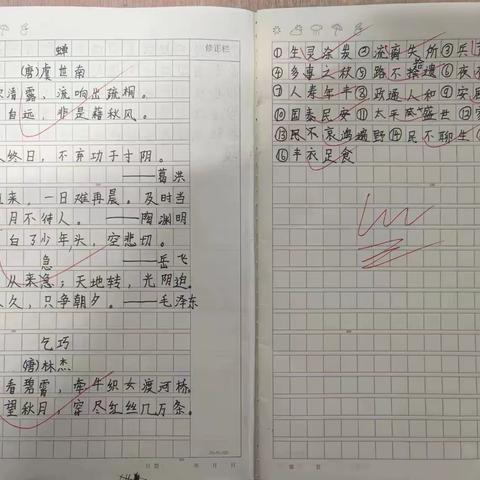 蝉 修正栏
(唐)虞世南
清露，流响出疏桐。
自远，非是藉秋风。
人终日，不弃功于寸阴。
——葛洪
来，一日难再晨。及时当
月不待人。——陶渊明
白了少年头，空悲切。
——岳飞
急
从来急；天地转，光阴迫。
久，只争朝夕。——毛泽东
乞巧
(唐)林杰
看碧霄，牵牛织女渡河桥。
望秋月，穿尽红丝几万条。
日期 年 月 日
①生灵涂炭②流离失所③兵
④多事之秋⑤路不拾遗⑥夜
⑦人寿年丰⑧政通人和⑨安
⑩国泰民安⑪太平盛世⑫
⑬哀鸿遍野⑭民不聊生
⑯丰衣足食